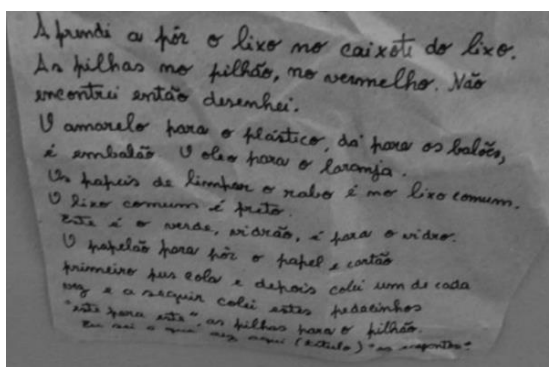 Aprendi a pôr o lixo no caixote do lixo.
As pilhas no pilhão, no vermelho. Não
encontrei então desenhei.
O amarelo para o plástico, dá para os balões,
é embalão O oleo para o laranja.
Os papeis de limpar o rabo é no lixo comum.
O lixo comum é preto.
Este é o verde, vidrão, é para o vidro.
O papelão para pôr o papel e cartão
primeiro pus cola e depois colei um de cada
vez e a seguir colei estes pedacinhos
"este para este". as pilhas para o pilhão.
Eu sei o que diz aqui (titulo) "os